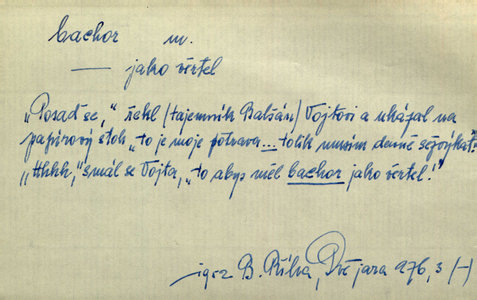 bachor m.
— jako věrtel
„Posaď se,“ řekl (tajemník Balšán) Vojtovi a ukázal na
papírový stoh „to je moje potrava... tolik musím denně sežvýkat.“
„Hhhh,“ smál se Vojta, „to abys měl bachor jako věrtel!“
B. Říha, Dvě jara 276, 3 (–)